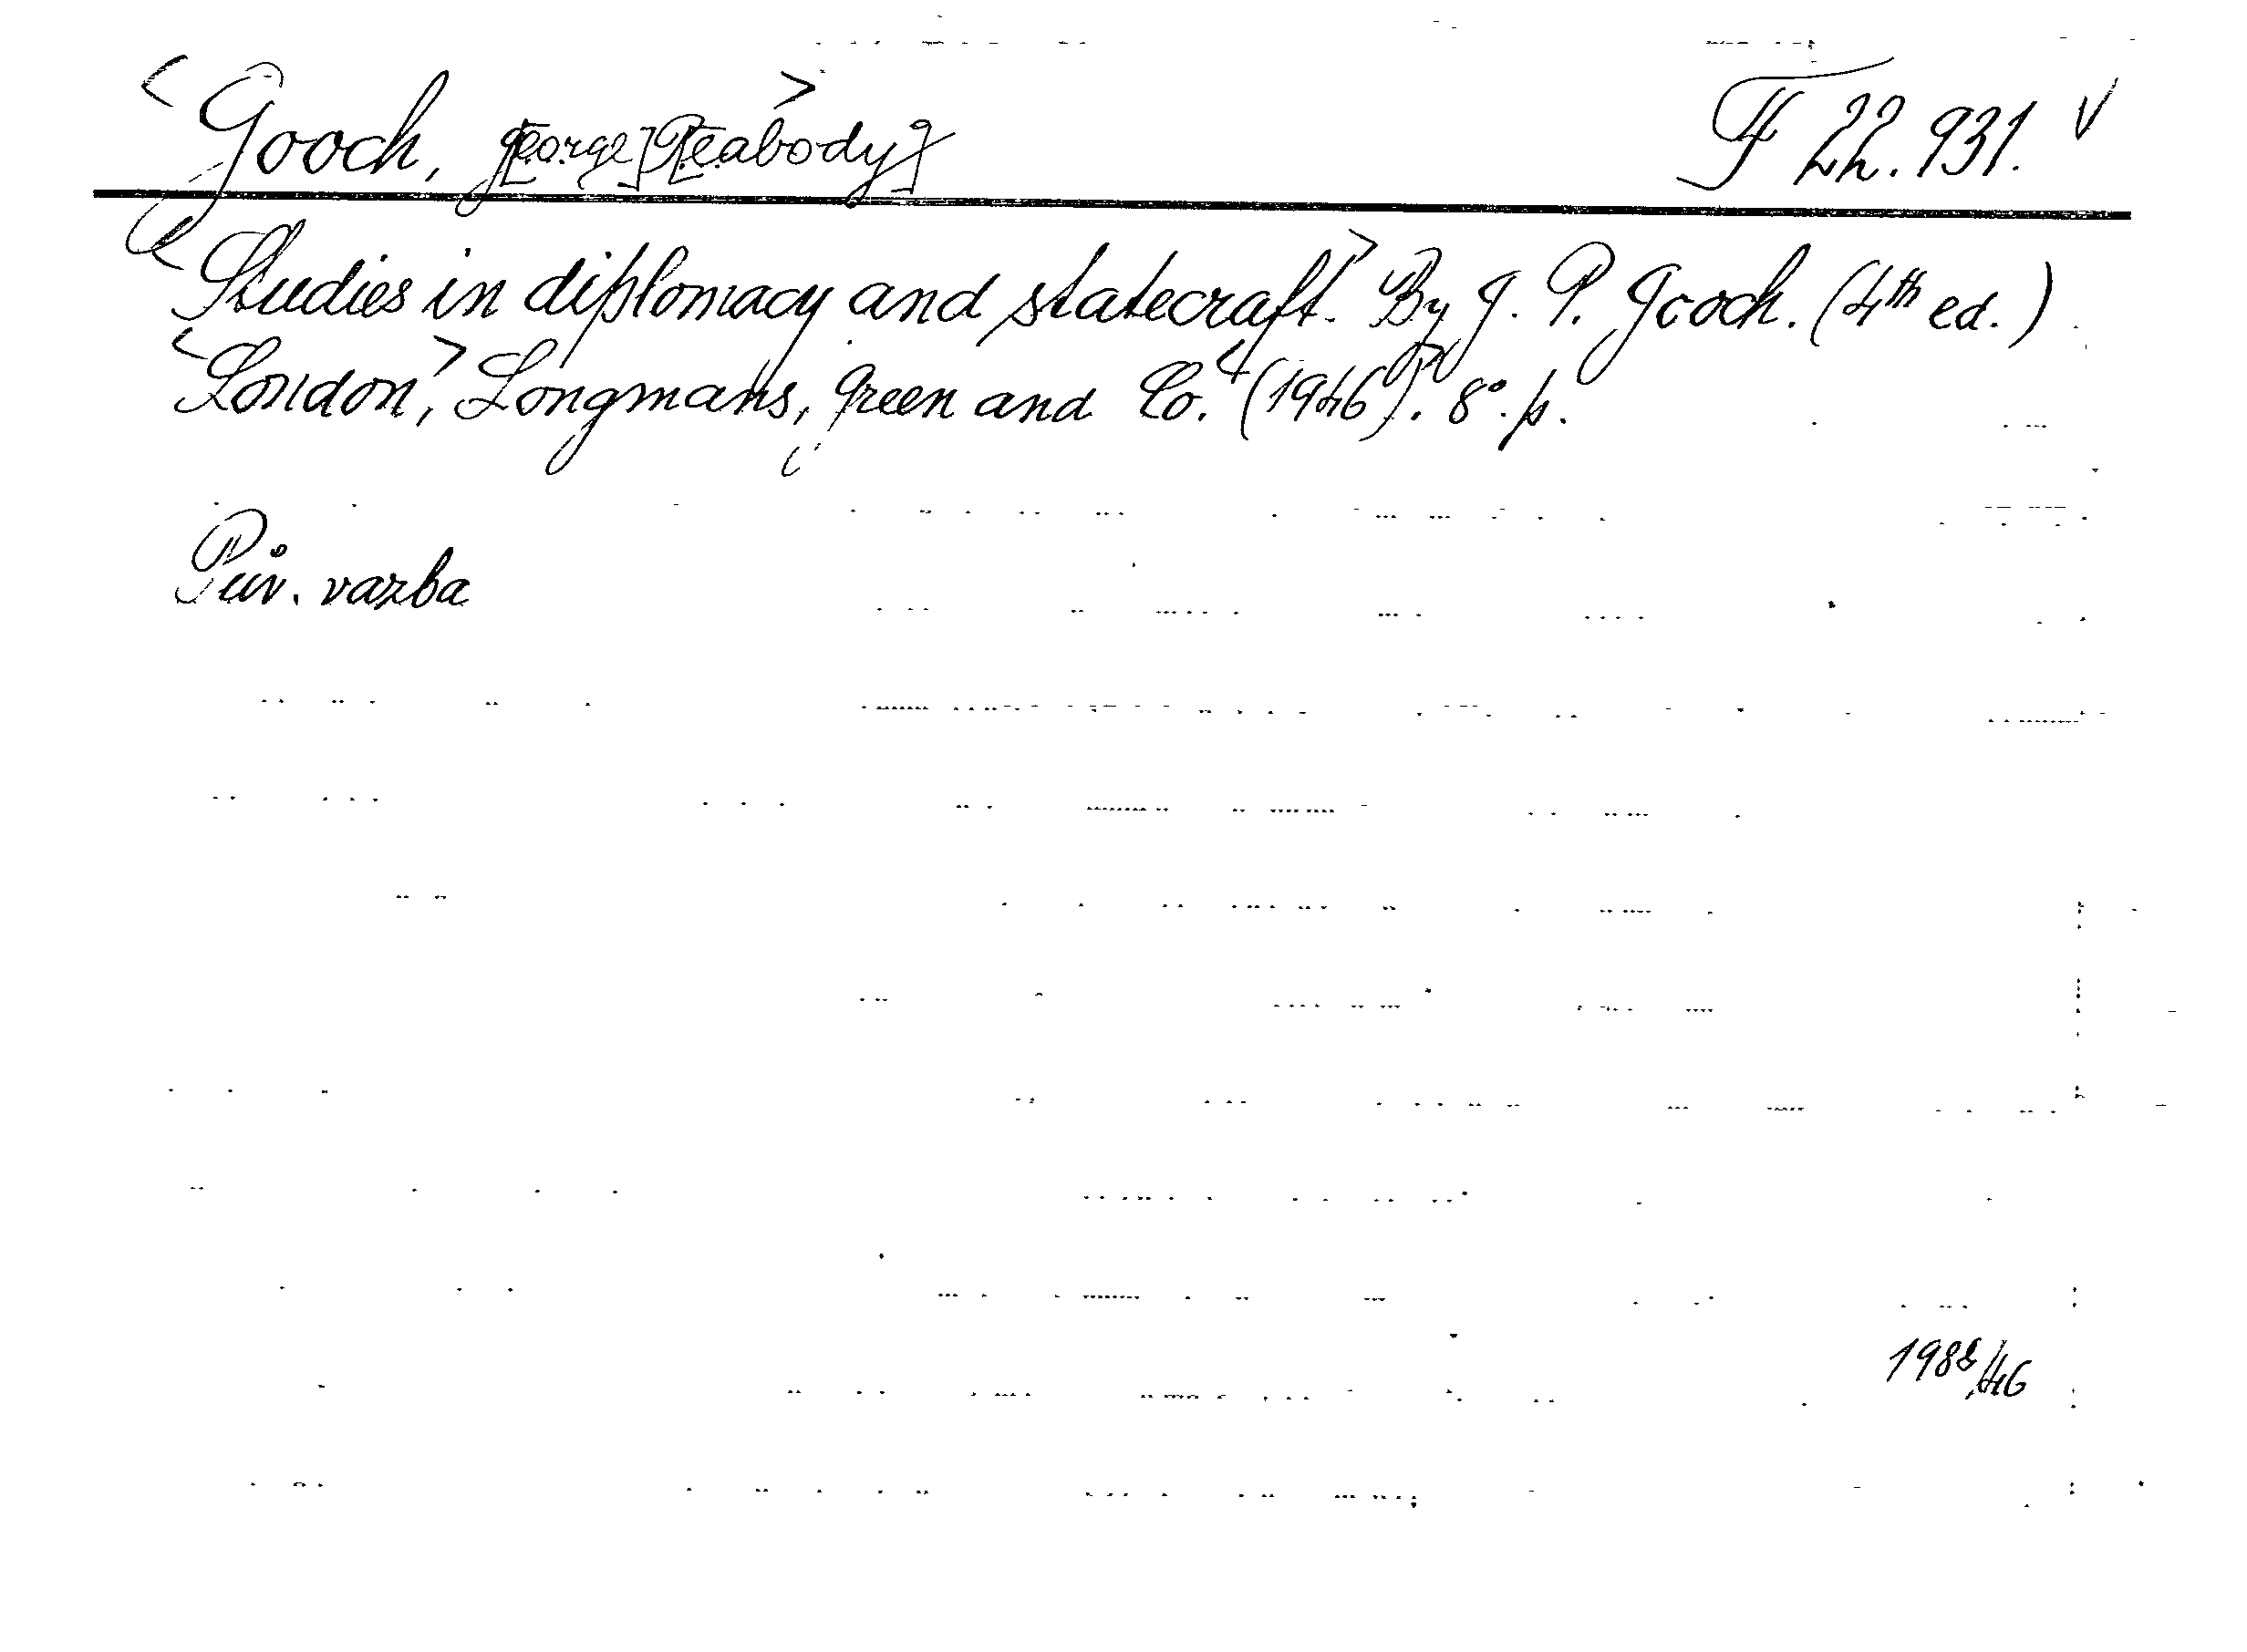 <Gooch, G[eorge] P[eabody]> F 22.931. V
<Studies in diplomacy and statecraft.> By G. P. Gooch. (4th ed.)
<London,> Longmans, Green and Co. <(1946)>. 8°. p.
Pův. vazba
1988/46